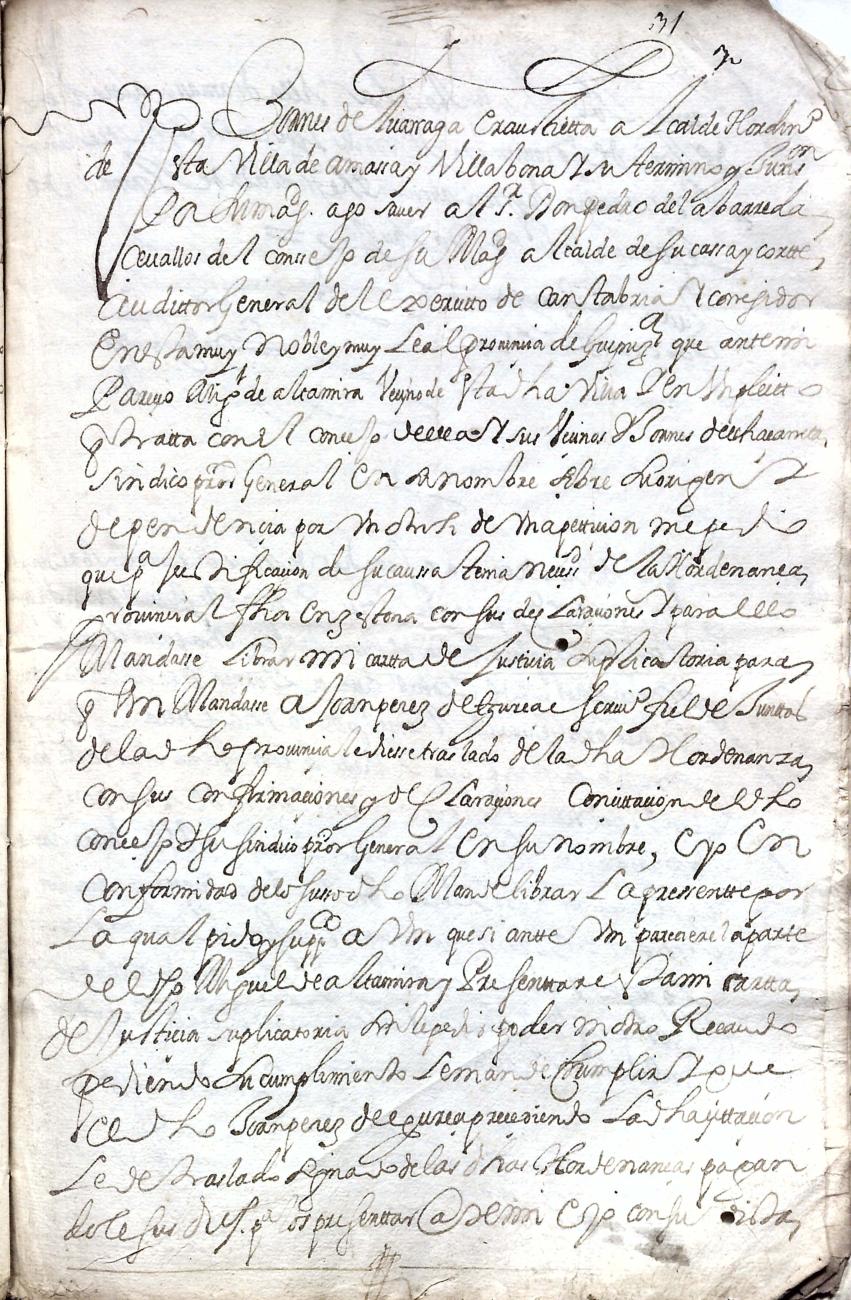 31
Joanes de Yuarraga Erausquetta alcalde Hordinº
de esta Villa de amassa y Villabona y su termino y Juris on
Por su mag. ago saver al Sr. Don pedro de la barreda
Ceuallos del conssejo de su Magd alcalde de su cassa y cortte
audittor General del exercitto de Cantabria y corregidor
En esta muy Noble y muy Leal provincia de Guipuzª que ante mi
Parezio Migl de altamira vezino de esta dha Villa Y en un pleitto
q tratta con el conzejo de ella y sus vezinos Y Joanes de echazarreta
sindico pror General en su nombre sobre su origen y
dependencia por un otrosi de una pettizion me pedio
que pª justificazion de su caussa tenia nessd de la Hordenanza
Provincial fha en zestona con sus declaraziones Y para ello
Mandasse Librar mi cartta de Justicia suplicatoria para
q Vm Mandasse a Joan perez de egurca escriuº fiel de Junttas
de la dha provincia le diesse traslado de la dha Hordenanza
con sus confirmaciones y declaraziones con cittazion del dho
conzejo Y su sindico pror General en su nombre, E yo En
Conformidad de lo susso dho Mande librar La pressentte por
La qual pido y suppco a Vm que si antte Vm pareziere la parte
del dho Miguel de altamira y Presenttare esta mi cartta
de Justicia suplicatoria sin le pedir poder ni otro Recaudo
pediendo su cumplimiento Le mande Cumplir Y que
el dho Joan perez de egurca prezediendo La dha zittazion
Le de traslado signado de las dhas Hordenanzas pagan
dole sus drs. pª los presenttar antte mi E yo con su vista